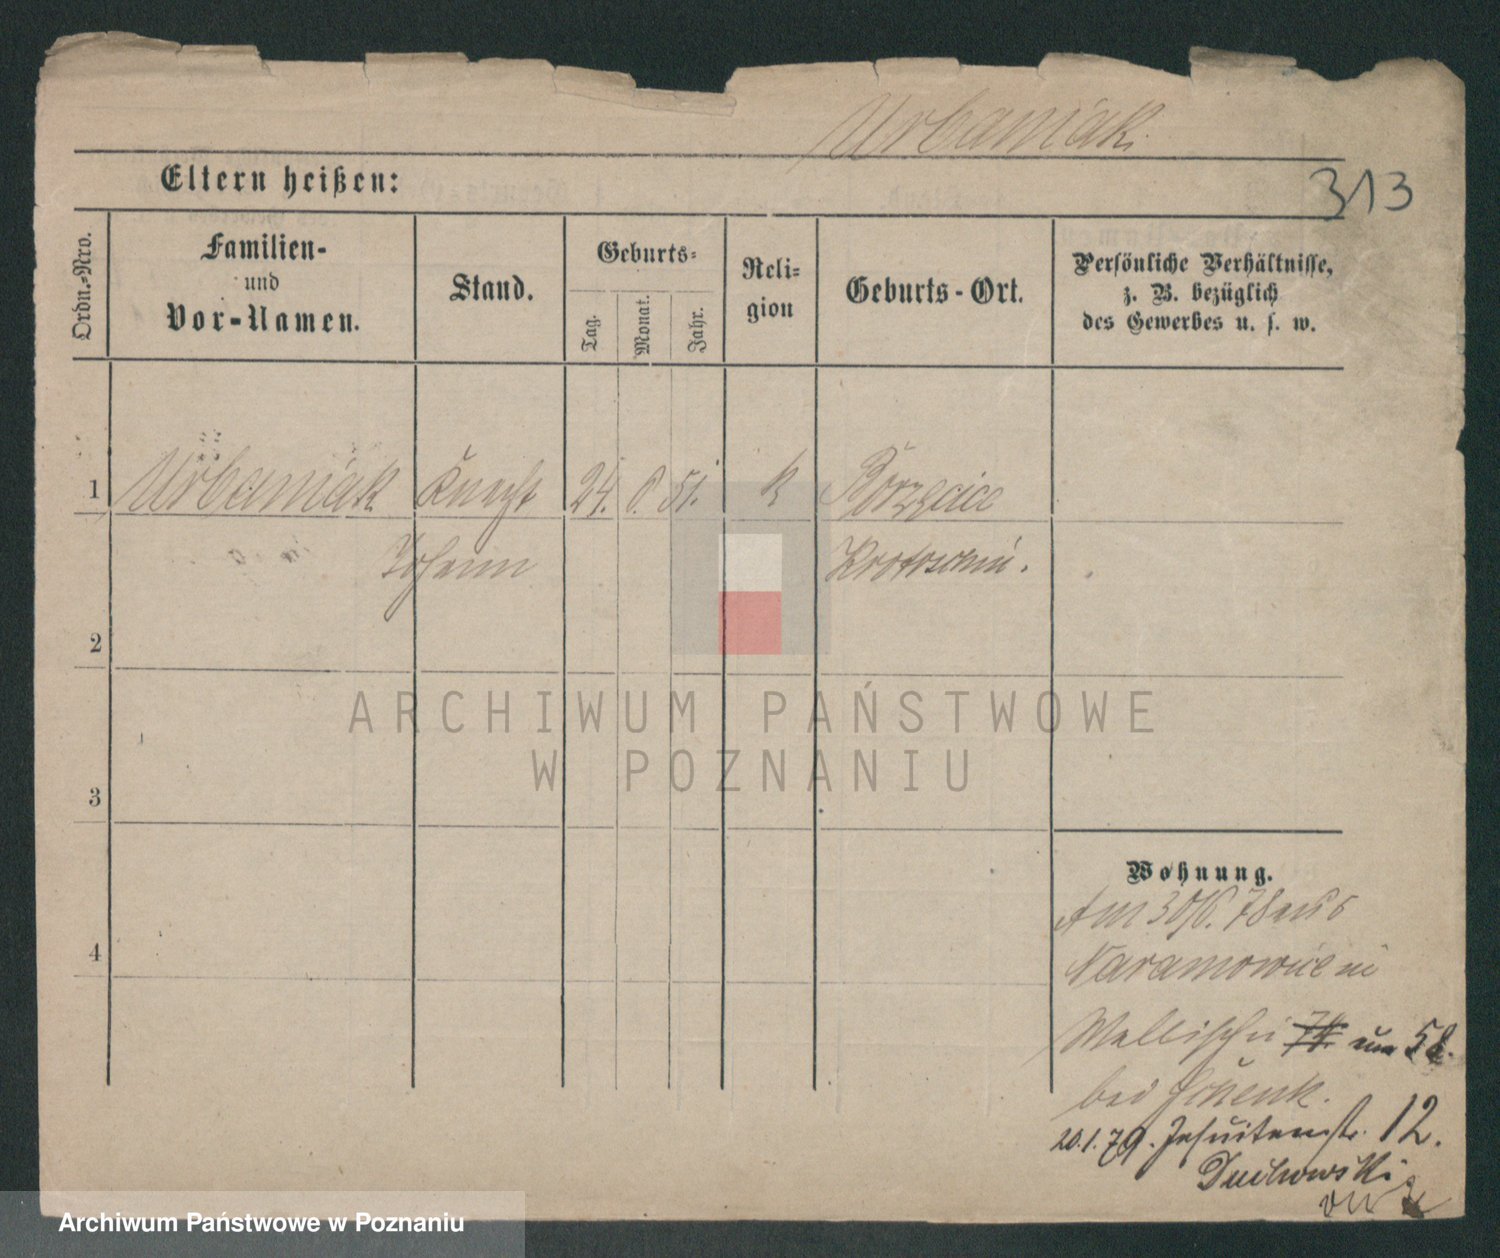 Urbaniak.
313
Eltern heißen:
Ordn.-Nro.
Familien-
und
Vor-Namen.
Stand.
Geburts-
Tag.
Monat.
Jahr.
Reli-
gion
Geburts-Ort.
Persönliche Verhältnisse,
z. B. bezüglich
des Gewerbes u. s. w.
1 Urbaniak Knecht 24. 8. 51. k Borzęcice
Krotoschin.
2
3
4
Wohnung.
Am 30/6. 78 aus
Naramowice in
Wallischei 74. 58.
bei Schenk.
20.1.79. Jesuitenstr. 12.
Duchowski
ARCHIWUM PAŃSTWOWE
W POZNANIU
Archiwum Państwowe w Poznaniu